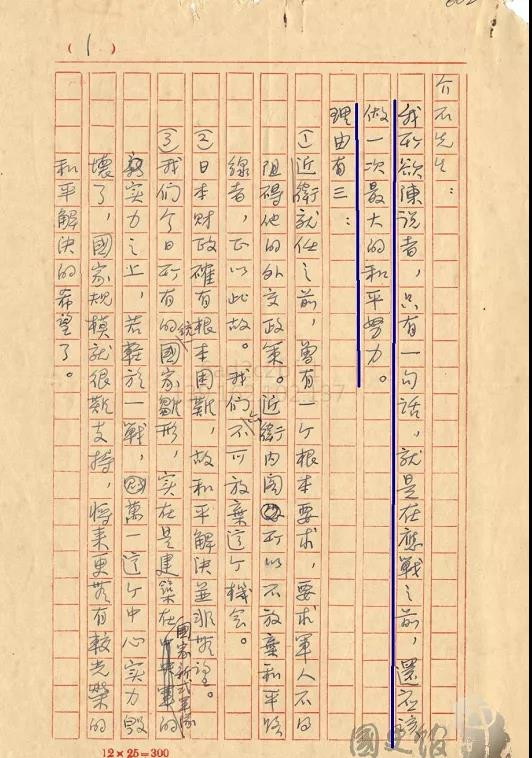 (1)
介石先生：
我所欲陳說者，只有一句話，就是在應戰之前，還應該
做一次最大的和平努力。
理由有三：
①近衛就任之前，曾有一个根本要求，要求軍人不得
阻碍他的外交政策。近衛内阁所以不放棄和平路
線者，正以此故。我们不可放棄这个機会。
②日本财政確有根本困難，故和平解決並非無望。
③我们今日所有的統一國家雛形，实在是建築在國家新式軍隊的
实力之上，若輕於一戰，萬一这个中心实力毀
壞了，國家規模就很難支持，将来更無有較光榮的
和平解決的希望了。
12×25=300
國史館